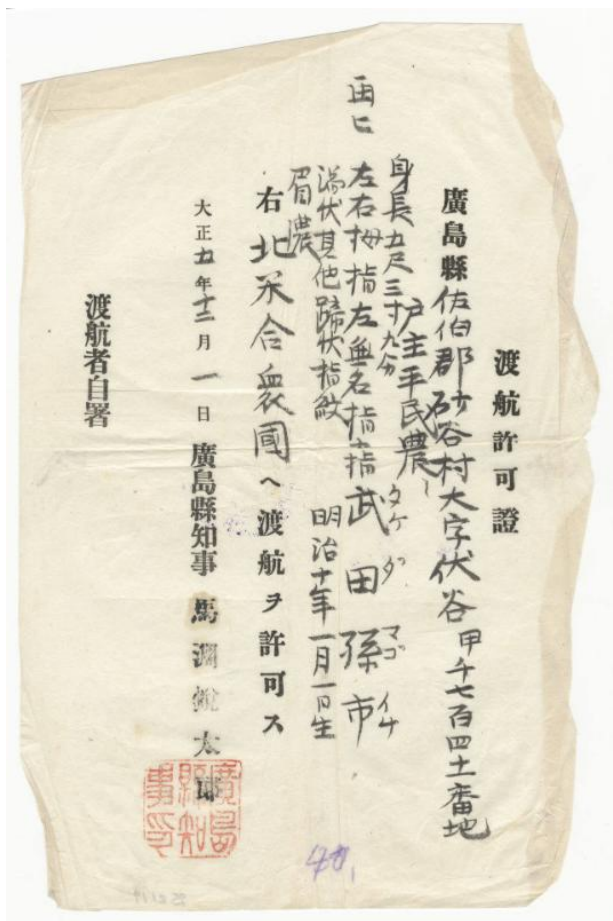 渡航許可證
廣島縣佐伯郡砂谷村大字伏谷甲千七百四十一番地
戸主平民農
タケダ マゴイチ
武田孫市
明治十年一月一日生
身長五尺三寸九分
左右拇指左無名指
渦状其他蹄状指紋
眉濃
右北米合衆國ヘ渡航ヲ許可ス
大正五年十二月一日 廣島縣知事 馬淵鋭太郎
廣島縣知事印
渡航者自署